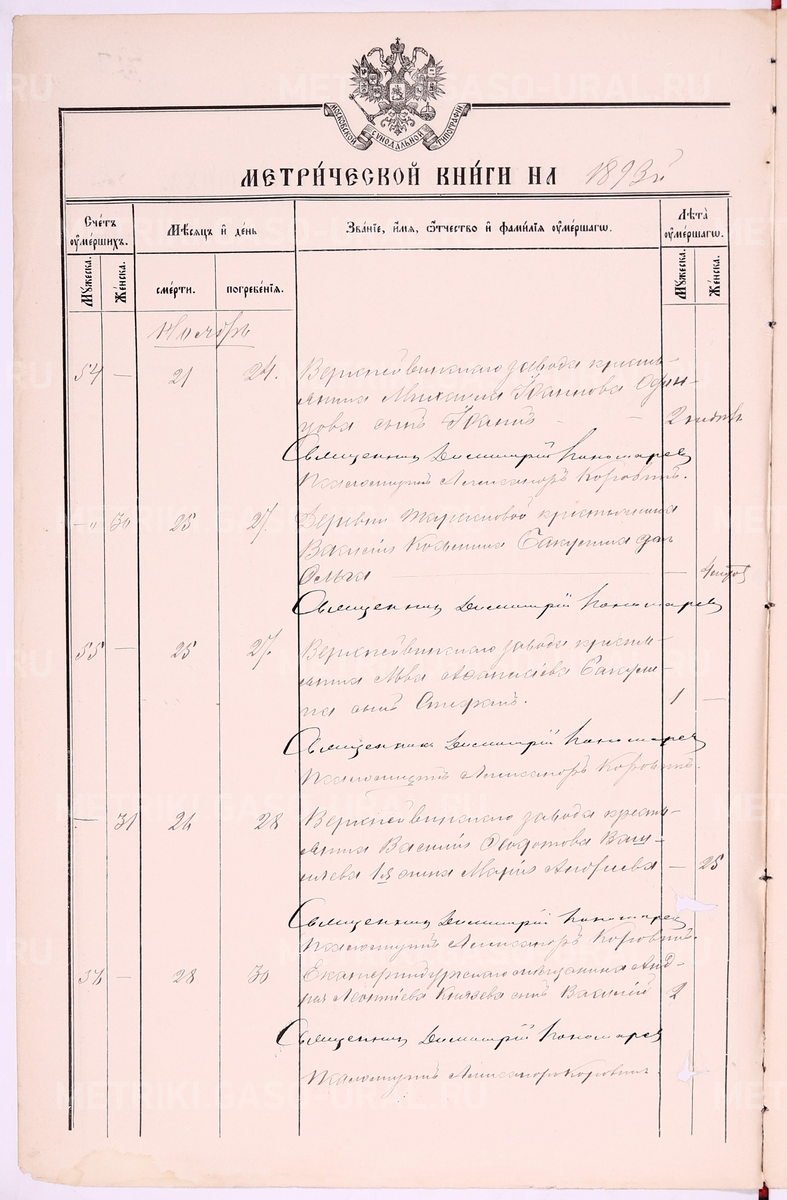 МОСКОВСКОЙ СѴНОДАЛЬНОЙ ТИПОГРАФІИ
МЕТРИ́ЧЕСКОЙ КНИ́ГИ НА 1893й
Сче́тъ ᲂу҆ме́ршихъ. Мѣ́сяцъ и҆ де́нь Зва́ніе, и҆́мя, ѻ҆́тчество и҆ фами́лія ᲂу҆ме́ршагѡ. Лѣ́та ᲂу҆ме́ршагѡ.
Мꙋ́жеска. Же́нска. сме́рти. погребе́нія. Мꙋ́жеска. Же́нска.
Ноябрь
54 — 21 24. Верхнейвинскаго завода кресть-
янина Михаила Иванова Один-
цова сынъ Иванъ — — 2 недѣль
Священникъ Димитрій Пономарев
Псаломщикъ Александръ Коровинъ.
—„ 30 25 27. Деревни Тарасковой крестьянина
Василія Козьмина Бакунина доч
Ольга — —
Священникъ Димитрій Пономарев
55 — 25 27. Верхнейвинскаго завода кресть-
янина Льва Афанасьева
на сынъ Стефанъ. 1 —
Священникъ Димитрій Пономарев
Псаломщикъ Александръ Коровинъ.
— 31 26 28 Верхнейвинскаго завода кресть-
янина Василія Федотова Васи-
ильева 1я жена Марія Андреева — 25
Священникъ Димитрій Пономарев
Псаломщикъ Александръ Коровинъ.
56 — 28 30 Екатеринбургскаго мѣщанина Анд-
рея Леонтіева Князева сынъ Василій 2
Священникъ Димитрій Пономарев
Псаломщикъ Александръ Коровинъ.
METRIKI.GASO-URAL.RU